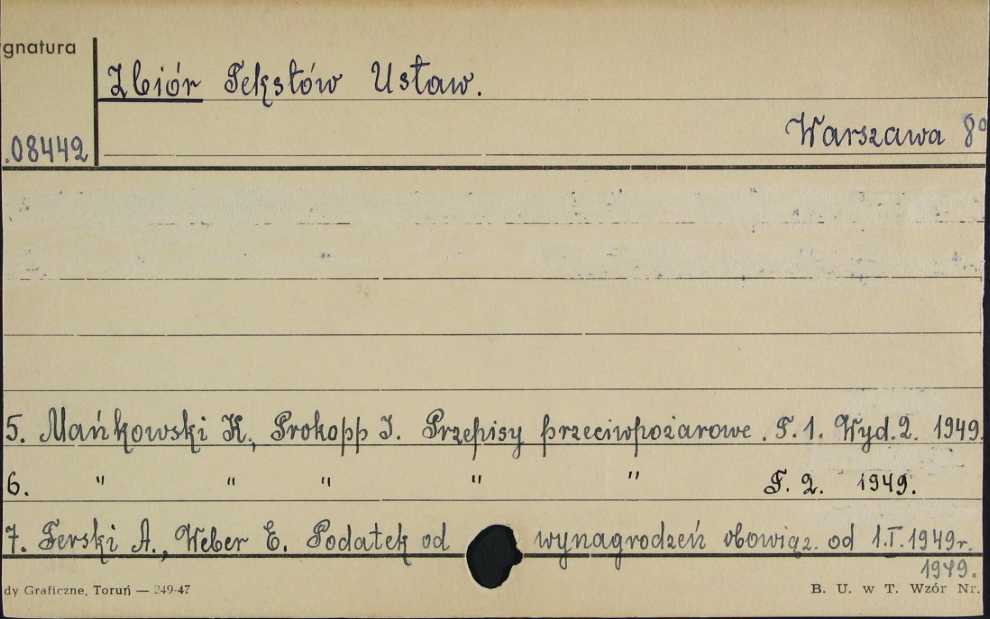 ygnatura
Zbiór Tekstów Ustaw.
Warszawa 8º
.08442
5. Mańkowski K., Prokopp J. Przepisy przeciwpożarowe. T. 1. Wyd. 2. 1949.
6. " " " " " T. 2. 1949.
7. Terski A., Weber E. Podatek od wynagrodzeń obowiąz. od 1.I.1949r.
1949.
dy Graficzne, Toruń — 249-47
B. U. w T. Wzór Nr.